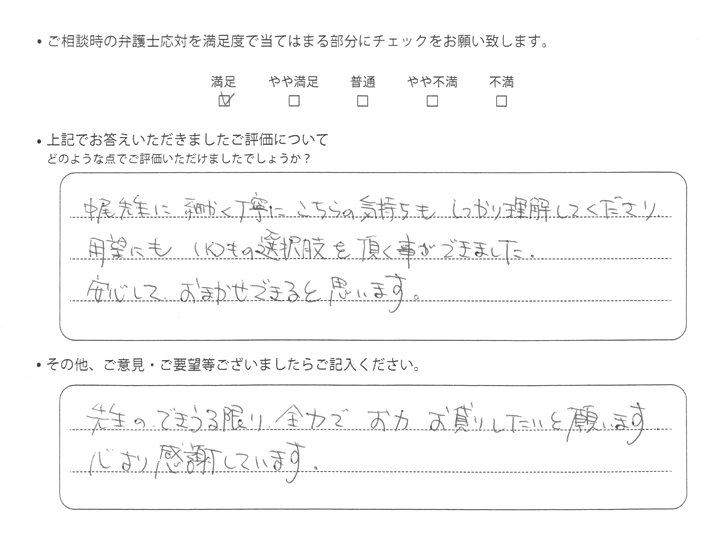 • ご相談時の弁護士応対を満足度で当てはまる部分にチェックをお願い致します。
満足 やや満足 普通 やや不満 不満
☑ □ □ □ □
• 上記でお答えいただきましたご評価について
どのような点でご評価いただけましたでしょうか？
中尾先生に 細かく丁寧に こちらの気持ちも しっかり理解してくださり
用望にも いくつもの選択肢を 頂く事ができました.
安心して おまかせできると思います。
• その他、ご意見・ご要望等ございましたらご記入ください。
先生の できうる限り 全力で お力 お貸りしたいと願います
心より 感謝しています.